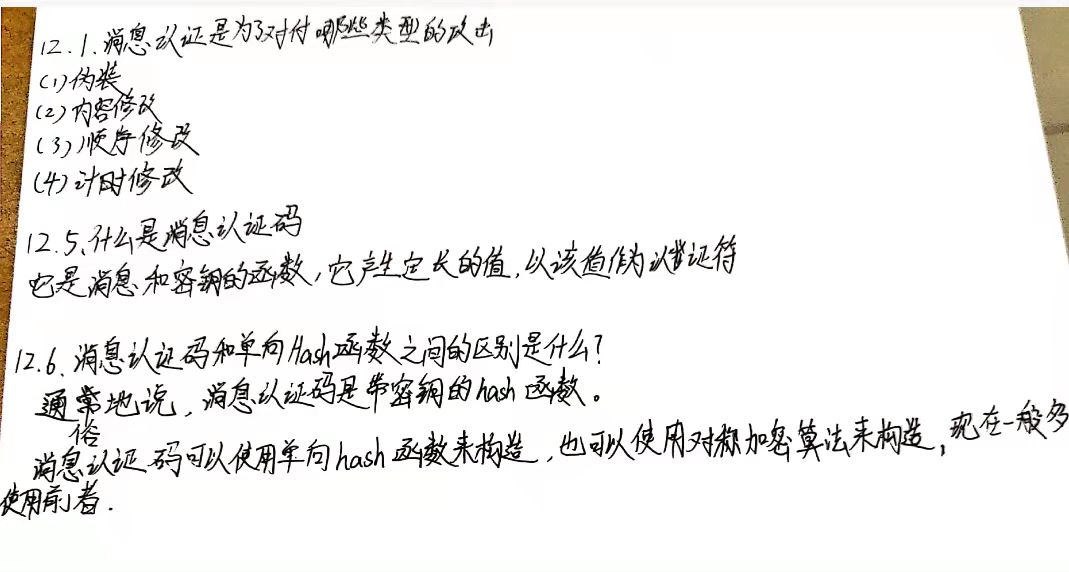 12.1.消息认证是为了对付哪些类型的攻击
(1)伪装
(2)内容修改
(3)顺序修改
(4)计时修改
12.5、什么是消息认证码
它是消息和密钥的函数,它产生定长的值,以该值作为认证符
12.6、消息认证码和单向Hash函数之间的区别是什么?
通常地说,消息认证码是带密钥的hash函数。
俗
消息认证码可以使用单向hash函数来构造,也可以使用对称加密算法来构造,现在一般多
使用前者.